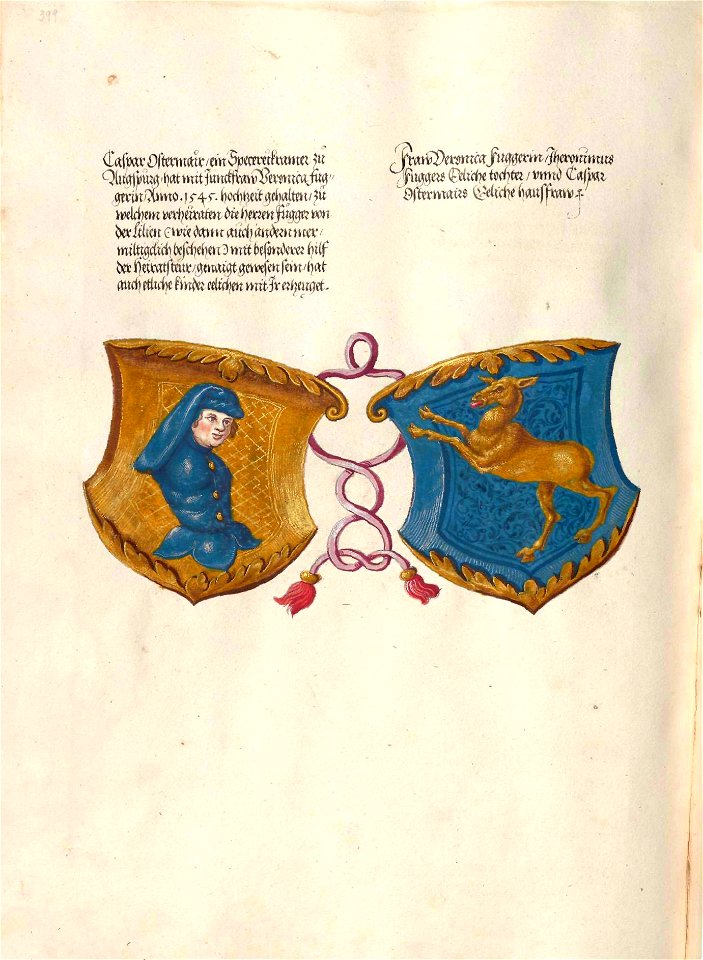 399
Caspar Ostermair / ein Specereikramer zů
Augspurg / hat mit Junckfraw Veronica Fug-
gerin Anno .1545. hochzeit gehalten / zů
welchem verheiraten die herren Fugger von
der Lilien (wie dann auch andern mer /
miltigclich beschehen) mit besonderer hilf
der Heiratsteur / genaigt gewesen sein / hat
auch etliche kinder eelichen mit Ir erzeuget.
Fraw Veronica Fuggerin / Jheronimus
Fuggers Eeliche tochter / vnnd Caspar
Ostermairs Eeliche hausfraw